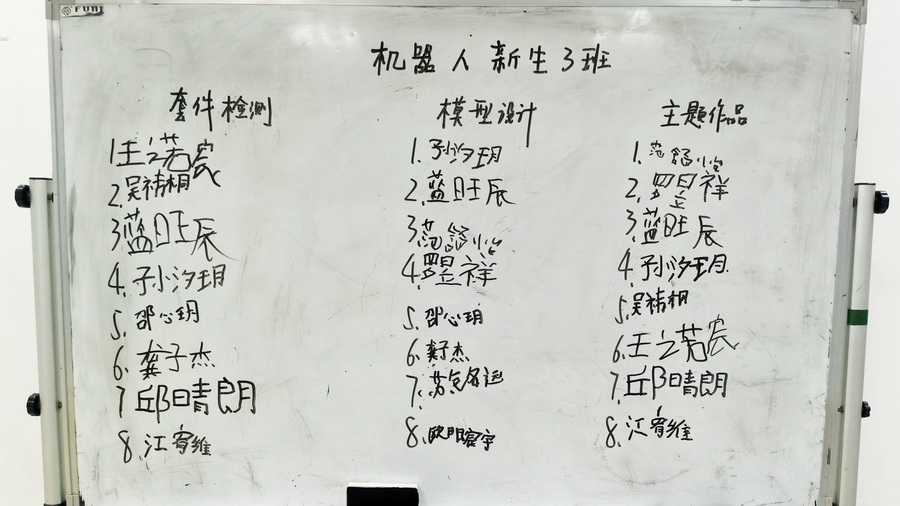 机器人新生3班
套件检测
1王之茗宸
2.吴祎桐
3蓝旺辰
4.孙汐玥
5.邵心玥
6.龚子杰
7邱晴朗
8.江宥维
模型设计
1.孙汐玥
2.蓝旺辰
3.范怡
4.祥
5.邵心玥
6.龚子杰
7.苏运
8.欧阳宸宇
主题作品
1.范怡
2.祥
3.蓝旺辰
4.孙汐玥.
5.吴祎桐
6.王之茗宸
7.邱晴朗
8.江宥维